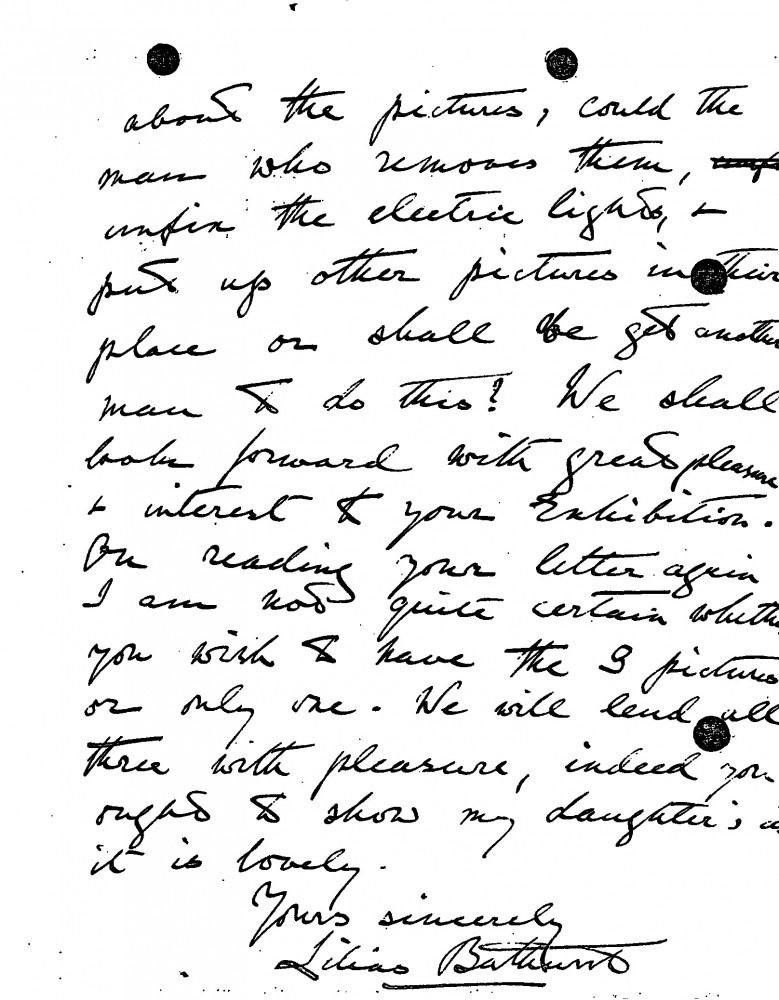 about the pictures, could the
man who removes them,
unfix the electric lights, &
put up other pictures in their
place or shall be get another
man to do this? We shall
look forward with great pleasure
& interest to your Exhibition.
On reading your letter again
I am not quite certain wheth
you wish to have the 3 pictures
or only one. We will lend all
three with pleasure, indeed you
ought to show my daughter's a
it is lovely.
Yours sincerely
Lilias Bathurst